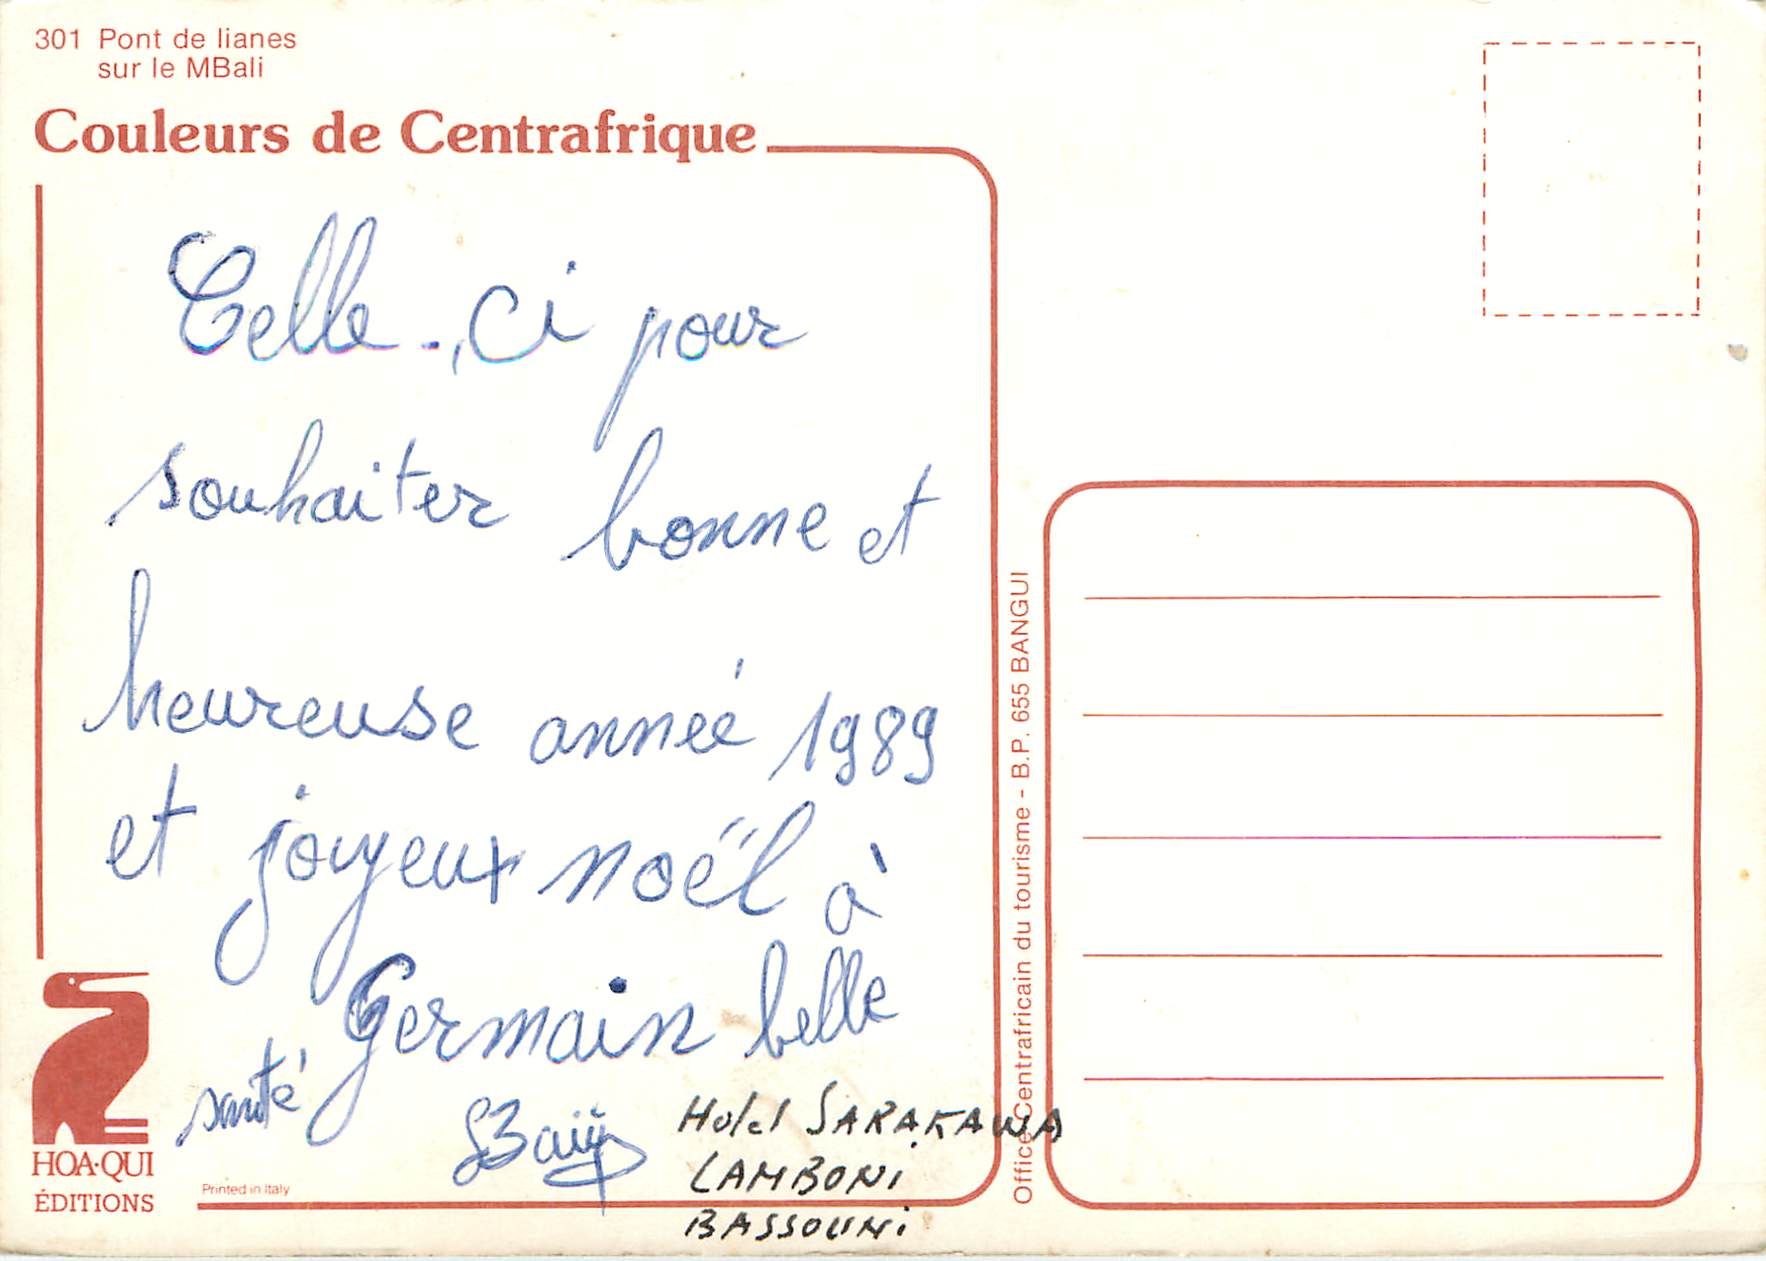 301 Pont de lianes
sur le MBali
Couleurs de Centrafrique
Celle-ci pour
souhaiter bonne et
heureuse année 1989
et joyeux noël à
Germain belle
santé
Hotel SARAKAWA
LAMBONi
BASSOUNi
HOA·QUI
ÉDITIONS
Printed in Italy
Office Centrafricain du tourisme - B.P. 655 BANGUI